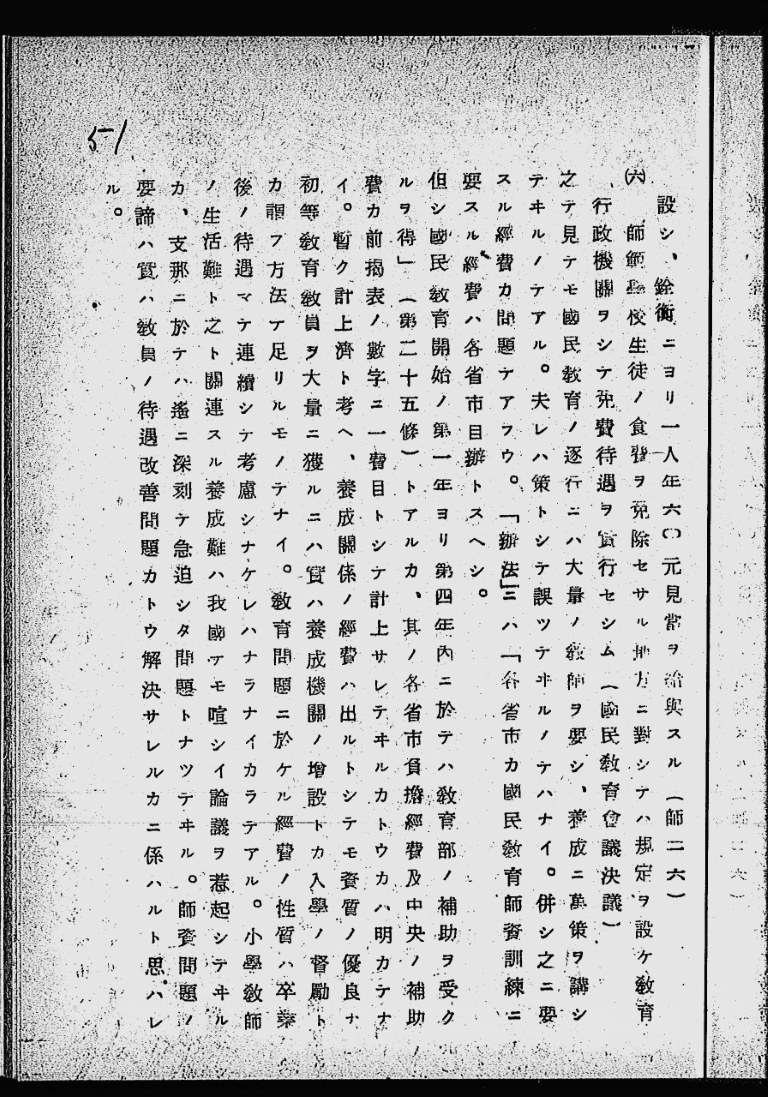 設シ、銓衡ニヨリ一人年六〇元見當ヲ給與スル（師二六）
㈥　師範學校生徒ノ食費ヲ免除セサル地方ニ對シテハ規定ヲ設ケ教育
行政機關ヲシテ免費待遇ヲ實行セシム（國民教育會議決議）
之テ見テモ國民教育ノ逐行ニハ大量ノ教師ヲ要シ、養成ニ萬策ヲ講シ
テヰルノテアル。夫レハ策トシテ誤ツテヰルノテハナイ。併シ之ニ要
スル經費カ問題テアラウ。「辦法」ニハ「各省市カ國民教育師資訓練ニ
要スル經費ハ各省市目辦トスヘシ。
但シ國民教育開始ノ第一年ヨリ第四年內ニ於テハ教育部ノ補助ヲ受ク
ルヲ得」（第二十五條）トアルカ、其ノ各省市負擔經費及中央ノ補助
費カ前揭表ノ數字ニ一費目トシテ計上サレテヰルカトウカハ明カテナ
イ。暫ク計上濟ト考ヘ、養成關係ノ經費ハ出ルトシテモ資質ノ優良ナ
初等教育教員ヲ大量ニ獲ルニハ實ハ養成機關ノ增設トカ入學ノ督勵ト
カ謂フ方法テ足リルモノテナイ。教育問題ニ於ケル經費ノ性質ハ卒業
後ノ待遇マテ連續シテ考慮シナケレハナラナイカラテアル。小學教師
ノ生活難ト之ト關連スル養成難ハ我國テモ喧シイ論議ヲ惹起シテヰル
カ、支那ニ於テハ遙ニ深刻テ急迫シタ問題トナツテヰル。師資問題ノ
要諦ハ實ハ教員ノ待遇改善問題カトウ解決サレルカニ係ハルト思ハレ
ル。
51